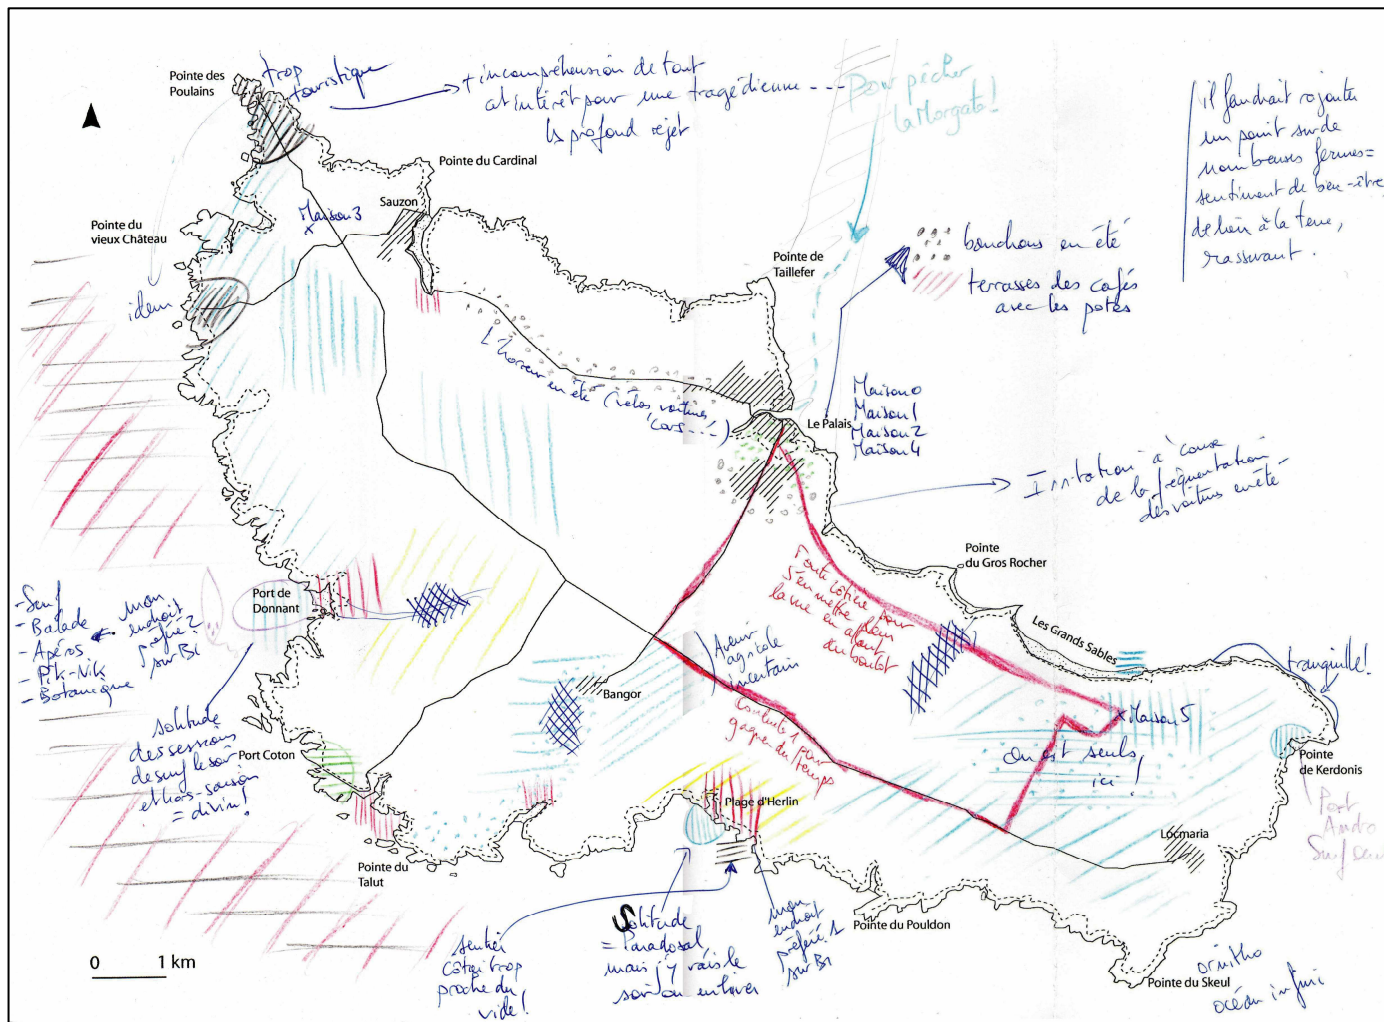 Pointe des
Poulains
trop
touristique
+ incompréhension de tout
cet intérêt pour une tragédienne ---
↳ profond rejet
Pour pêcher
la Morgate!
il faudrait rajouter
un point sur de
nombreuses fermes =
sentiment de bien-être
de lien à la terre,
rassurant.
Pointe du Cardinal
Sauzon
Maison 3
Pointe du
vieux Château
idem
Pointe de
Taillefer
bouchons en été
terrasses des cafés
avec les potes
L'horreur en été (vélos, voitures,
cars ---)
Le Palais
Maison 0
Maison 1
Maison 2
Maison 4
Irritation à cause
de la fréquentation
des voitures en été
Pointe
du Gros Rocher
Les Grands Sables
tranquille!
route côtière pour
s'en mettre plein
la vue en allant
au boulot
Port de
Donnant
- Surf
- Balade
- Apéros
- Pik-Nik
- Botanique
mon
endroit
préféré 2
sur Bi
solitude
des sessions
de surf le soir
et hors-saison
= divin!
Avenir
agricole
incertain
Bangor
pour
gagner du temps
Maison 5
On est seuls
ici!
Pointe
de Kerdonis
Port
Andro
Surf
Port Coton
Plage d'Herlin
Locmaria
Pointe du
Talut
sentier
côtier trop
proche du
vide!
Solitude
= Paradoxal,
mais j'y vais le
soir ou en hiver
mon
endroit
préféré 1
sur Bi
Pointe du Pouldon
Pointe du Skeul
ornitho
océan infini
0 1 km